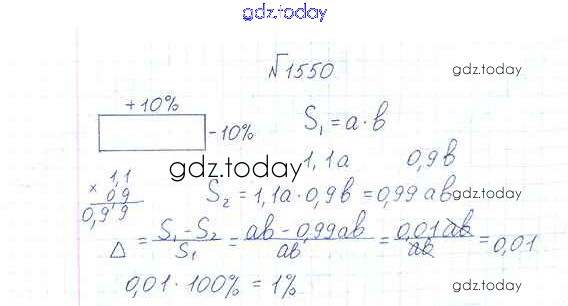 gdz.today
№1550
gdz.today
+10%
-10%
S₁ = a · b
gdz.today
1,1a 0,9b
1,1
× 0,9
0,99
S₂ = 1,1a · 0,9b = 0,99 ab
gdz.today
Δ = (S₁ - S₂)/S₁ = (ab - 0,99ab)/ab = 0,01ab/ab = 0,01
0,01 · 100% = 1%
gdz.today